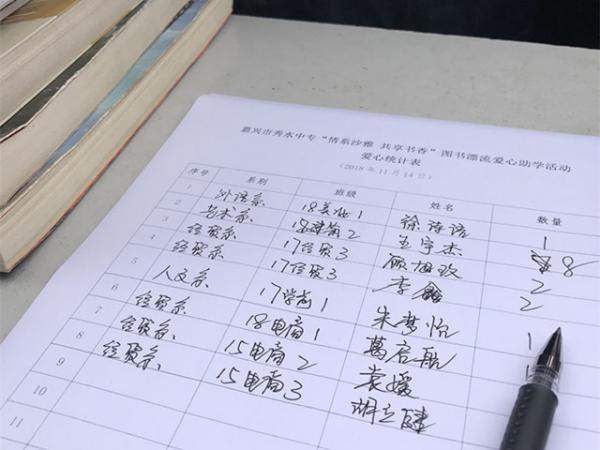 嘉兴市秀水中专“情系沙雅 共享书香”图书漂流爱心助学活动
爱心统计表
(2018年11月14日)
序号 系别 班级 姓名 数量
1 外语系 18美妆1 徐诗语 1
2 艺术系 18建筑2 王宇杰 8
3 经贸系 17经贸3 顾 2
4 经贸系 17经贸3 李鑫 2
5 人文系 17学前1 朱梦怡
6 经贸系 18电商1 葛启航 1
7 经贸系 15电商2 袁媛 1
8 经贸系 15电商3 胡立健
9
10
11